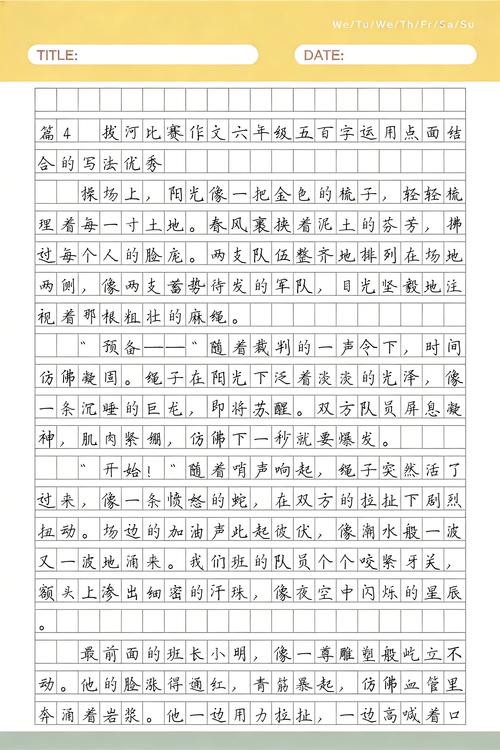 We/Tu/We/Th/Fr/Sa/Su
TITLE:
DATE:
篇4 拔河比赛作文六年级五百字运用点面结
合的写法优秀
操场上，阳光像一把金色的梳子，轻轻梳
理着每一寸土地。春风裹挟着泥土的芬芳，拂
过每个人的脸庞。两支队伍整齐地排列在场地
两侧，像两支蓄势待发的军队，目光坚毅地注
视着那根粗壮的麻绳。
“预备——“随着裁判的一声令下，时间
仿佛凝固。绳子在阳光下泛着淡淡的光泽，像
一条沉睡的巨龙，即将苏醒。双方队员屏息凝
神，肌肉紧绷，仿佛下一秒就要爆发。
“开始！“随着哨声响起，绳子突然活了
过来，像一条愤怒的蛇，在双方的拉扯下剧烈
扭动。场边的加油声此起彼伏，像潮水般一波
又一波地涌来。我们班的队员个个咬紧牙关，
额头上渗出细密的汗珠，像夜空中闪烁的星辰
。
最前面的班长小明，像一尊雕塑般屹立不
动。他的脸涨得通红，青筋暴起，仿佛血管里
奔涌着岩浆。他一边用力拉扯，一边高喊着口